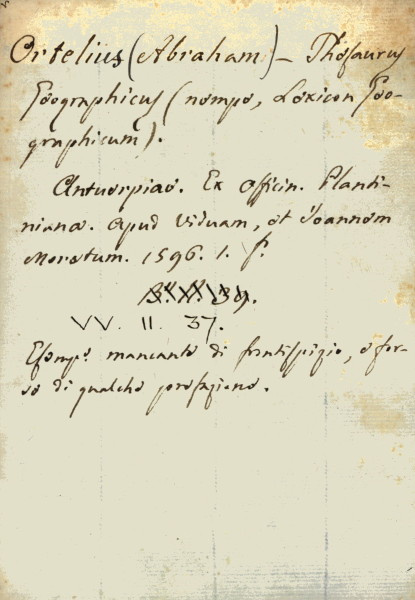 Ortelius (Abraham) - Thesaurus
Geographicus (nempe, Lexicon Geo-
graphicum).
Antuerpiae. Ex Officin. Planti-
niana. Apud Viduam, et Joannem
Moretum. 1596. 1. f.
39.
VV. II. 37.
Esemp.e mancante di frontispizio, e for-
se di qualche prefazione.